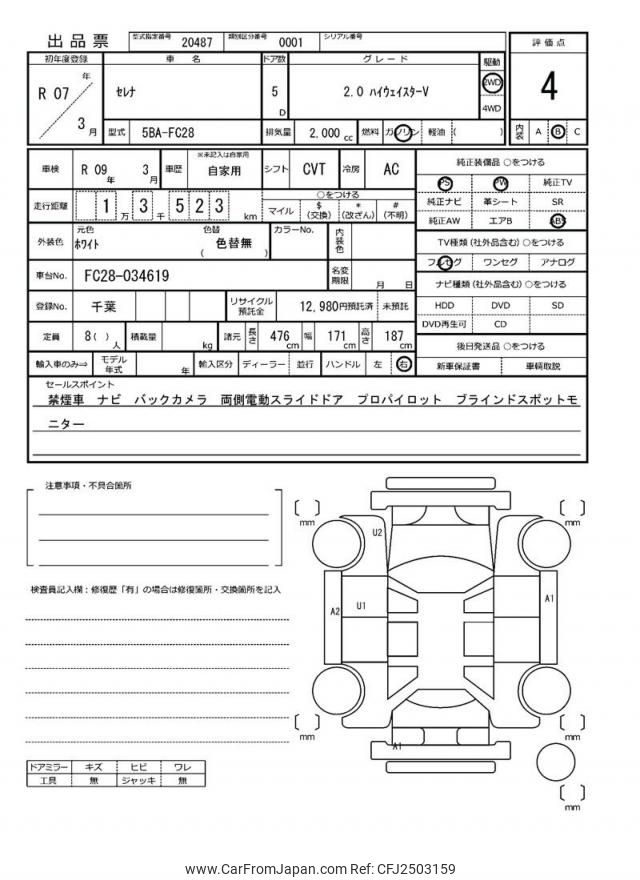 出品票
型式指定番号 20487 類別区分番号 0001 シリアル番号
初年度登録 車名 ドア数 グレード 駆動 評価点
R 07 年 3 月
セレナ 5 D 2.0 ハイウェイスターV 2WD 4WD
4
型式 5BA-FC28 排気量 2,000 cc 燃料 ガソリン 軽油 ( )
内装 A B C
車検 R 09 年 3 月 車歴 ※未記入は自家用 自家用 シフト CVT 冷房 AC
走行距離 1 万 3 千 5 2 3 km
○をつける
マイル $ (交換) * (改ざん) # (不明)
外装色 元色 ホワイト 色替 色替無 ( ) カラーNo. 内装色
車台No. FC28-034619 名変期限 月 日
登録No. 千葉 リサイクル預託金 12,980円預託済 未預託
定員 8( ) 人 積載量 kg 諸元 長さ 476 cm 幅 171 cm 高さ 187 cm
輸入車のみ⇒ モデル年式 年 輸入区分 ディーラー 並行 ハンドル 左 右
純正装備品 ○をつける
PS PW 純正TV
純正ナビ 革シート SR
純正AW エアB ABS
TV種類(社外品含む) ○をつける
フルセグ ワンセグ アナログ
ナビ種類(社外品含む) ○をつける
HDD DVD SD
DVD再生可 CD
後日発送品 ○をつける
新車保証書 車輌取説
セールスポイント
禁煙車 ナビ バックカメラ 両側電動スライドドア プロパイロット ブラインドスポットモ
ニター
注意事項・不具合箇所
検査員記入欄:修復歴「有」の場合は修復箇所・交換箇所を記入
ドアミラー キズ ヒビ ワレ
工具 無 ジャッキ 無
mm
mm
U2
A2
U1
A1
mm
mm
A1
mm
www.CarFromJapan.com Ref: CFJ2503159